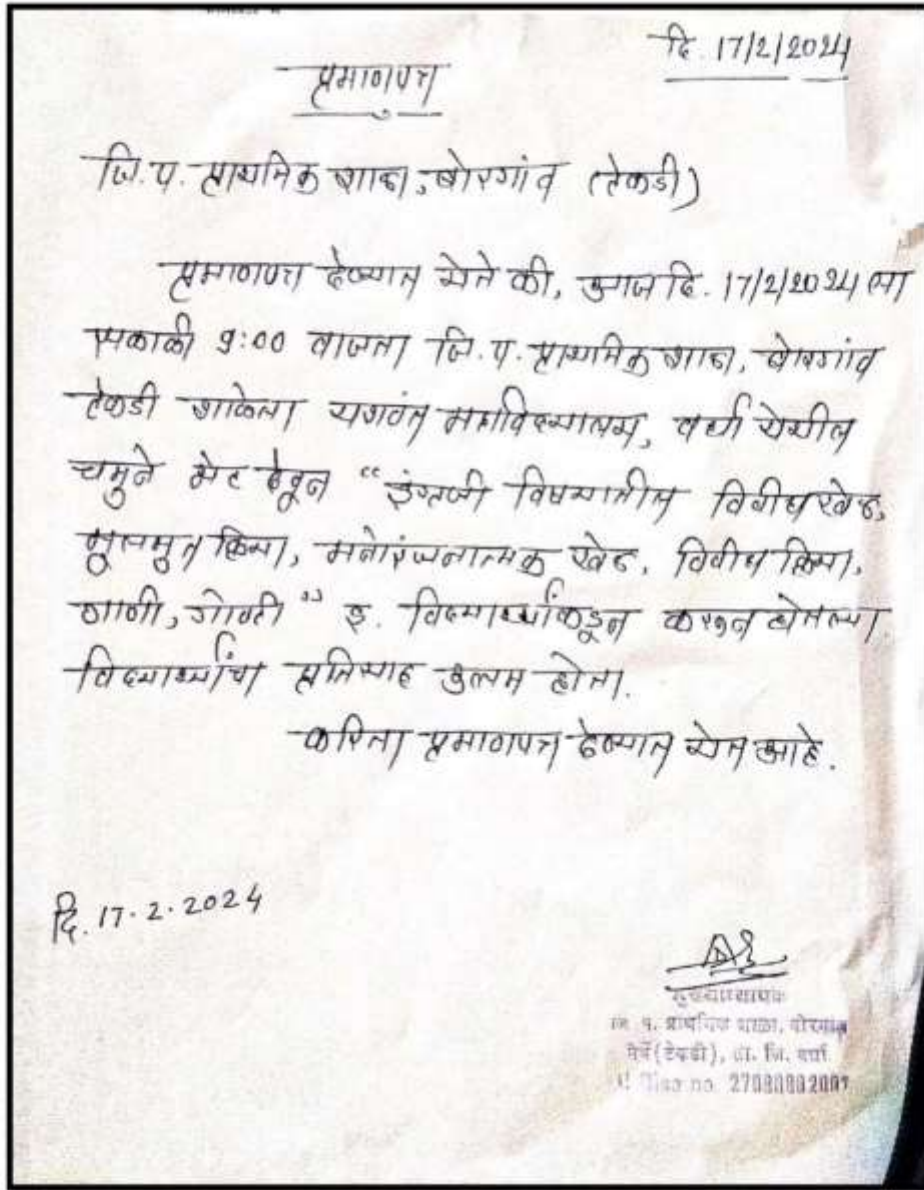 दि. 17/2/2024
प्रमाणपत्र
जि.प. प्राथमिक शाळा, बोरगांव (टेकडी)
प्रमाणपत्र देण्यात येते की, आज दि. 17/2/2024 ला
सकाळी 9:00 वाजता जि.प. प्राथमिक शाळा, बोरगांव
टेकडी शाळेला यशवंत महाविद्यालय, वर्धा येथील
चमुने भेट देवून "इंग्रजी विषयातील विवीध खेळ,
मुलभुत क्रिया, मनोरंजनात्मक खेळ, विवीध क्रिया,
गाणी, गोष्टी" इ. विद्यार्थ्यांकडून करवून घेतल्या
विद्यार्थ्यांचा प्रतिसाद उत्तम होता.
करिता प्रमाणपत्र देण्यात येत आहे.
दि. 17.2.2024
मुख्याध्यापक
जि. प. प्राथमिक शाळा, बोरगाव
(टेकडी), ता. जि. वर्धा
no. 27080802001